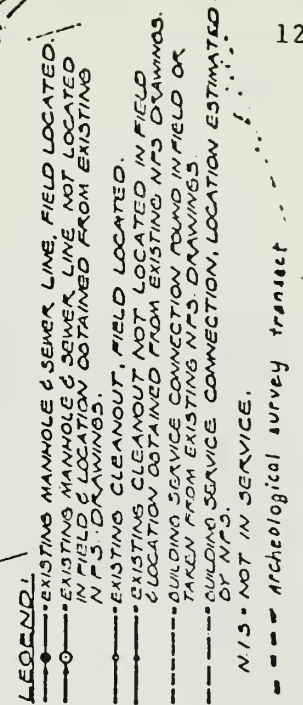 12
LEGEND:
EXISTING MANHOLE & SEWER LINE, FIELD LOCATED.
EXISTING MANHOLE & SEWER LINE NOT LOCATED
IN FIELD & LOCATION OBTAINED FROM EXISTING
N.P.S. DRAWINGS.
EXISTING CLEANOUT, FIELD LOCATED.
EXISTING CLEANOUT NOT LOCATED IN FIELD
& LOCATION OBTAINED FROM EXISTING NPS DRAWINGS.
BUILDING SERVICE CONNECTION FOUND IN FIELD OR
TAKEN FROM EXISTING NPS DRAWINGS.
BUILDING SERVICE CONNECTION, LOCATION ESTIMATED
BY NPS.
N.I.S = NOT IN SERVICE.
Archeological survey transect